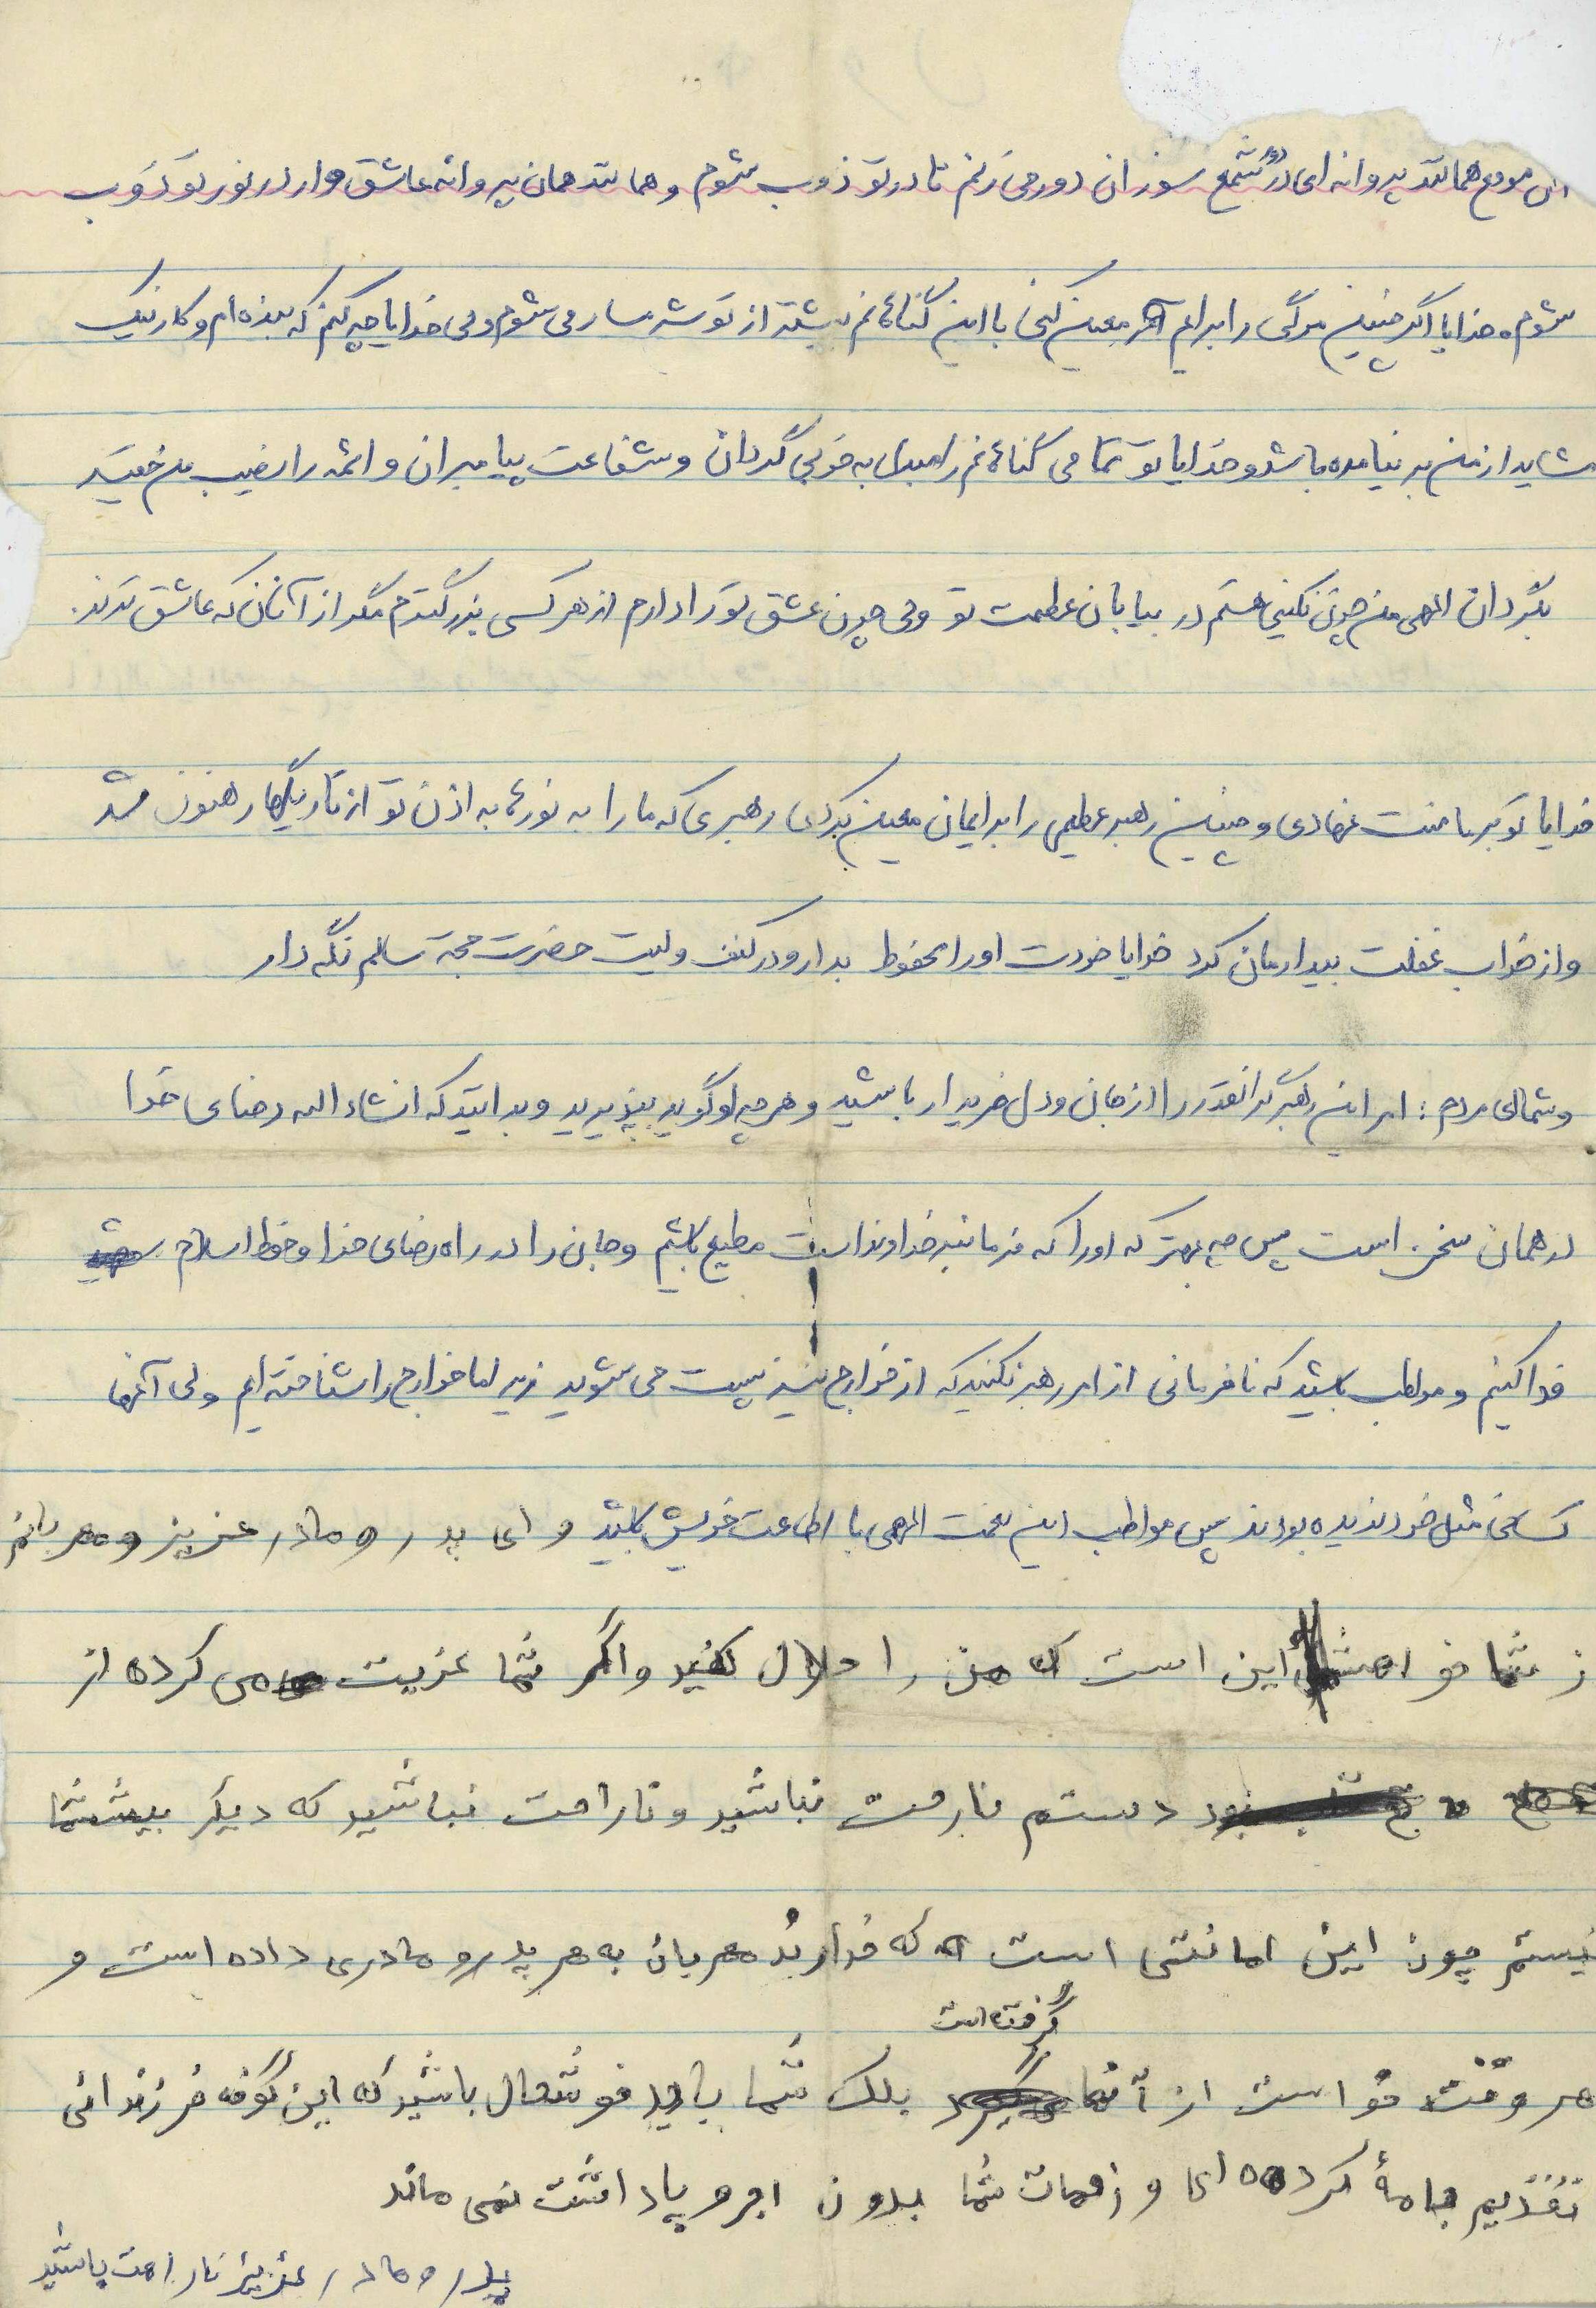 این موقع همانند پروانه‌ای دور شمع سوزان دور می‌زنم تا در تو ذوب شوم و همانند همان پروانه عاشق وار در نور تو ذوب
شوم. خدایا اگر چنین مرگی را برایم معین کنی با این گناهانم بیشتر از تو شرمسار می‌شوم ولی خدایا چه کنم که بنده‌ام و کار نیک
شاید از من بر نیامده باشد و خدایا تو تمامی گناهانم را مبدل به خوبی گردان و شفاعت پیامبران و ائمه را نصیب من
بگردان الهی من چون نگینی هستم در بیابان عظمت تو ولی چون عشق تو را دارم از هر کسی بزرگترم مگر از آنان که عاشق ترند.
خدایا تو بر ما منت نهادی و چنین رهبر عظیمی را برایمان معین کردی رهبری که ما را به نورها به اذن تو از تاریکیها رهنون شد
و از خواب غفلت بیدارمان کرد خدایا خودت او را محفوظ بدار و در کنف ولیت حضرت حجة سالم نگه دار
و شما ای مردم: امر این رهبر گرانقدر را از جان و دل خریدار باشید و هر چه او گوید بپذیرید و بدانید که انشاء الله رضای خدا
در همان سخن است پس چه بهتر که او را که فرمانبر خداوند است مطیع باشیم و جان را در راه رضای خدا و حفظ اسلام
فدا کنیم و مواظب باشید که نافرمانی از امر رهبر نکنید که از خوارج نیز پست می‌شوید زیرا ما خوارج را شناخته‌ایم ولی آنها
کسانی مثل خود ندیده بودند پس مواظب این نعمت الهی با اطاعت خویش باشید و ای پدر و مادر عزیز و مهربانم
ز شما خواهشم این است که من را حلال کنید و اگر شما عزیت می کرده از
دستم نارحت نباشید و ناراحت نباشید که دیگر بیش شما
نیستم چون این امانتی است که خداوند مهربان به هر پدر و مادری داده است و
هر وقت خواست از آنها گرفته است بلک شما باید خوشحال باشید که این گونه فرزندانی
تقدیم جامهٔ کرده ای و زحمات شما بدون اجر و پاداشت نمی ماند
پدر و مادر عزیز ناراحت باشید